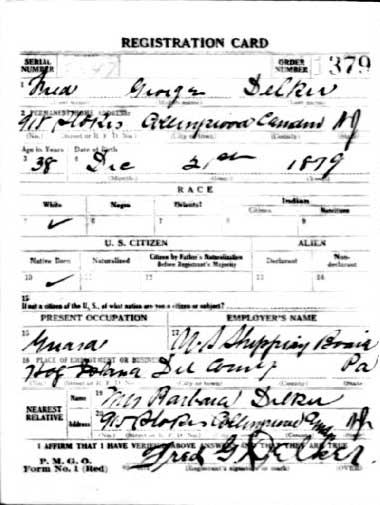 REGISTRATION CARD
SERIAL NUMBER ORDER NUMBER 1379
1 Fred George Delker
(First name) (Middle name) (Last name)
2 PERMANENT HOME ADDRESS:
915 Stokes Collingswood Camden NJ
(No.) (Street or R. F. D. No.) (City or town) (County) (State)
Age in Years Date of Birth
3 38 4 Dec 21st 1879
(Month.) (Day.) (Year.)
RACE
White Negro Oriental Indian
Citizen Noncitizen
5 ✓ 6 7 8 9
U. S. CITIZEN ALIEN
Native Born Naturalized Citizen by Father's Naturalization Before Registrant's Majority Declarant Non-declarant
10 ✓ 11 12 13 14
15
If not a citizen of the U. S., of what nation are you a citizen or subject?
PRESENT OCCUPATION EMPLOYER'S NAME
16 Guard 17 U.S Shipping Board
18 PLACE OF EMPLOYMENT OR BUSINESS
Hog Island Del County Pa
(No.) (Street or R. F. D. No.) (City or town) (County) (State)
NEAREST RELATIVE
Name 19 Mrs Barbara Delker
Address 20 915 Stokes Collingswood NJ
(No.) (Street or R. F. D. No.) (City or town) (County) (State)
I AFFIRM THAT I HAVE VERIFIED ABOVE ANSWERS AND THAT THEY ARE TRUE
P. M. G. O.
Form No. 1 (Red) Fred G Delker
(Registrant's signature or mark) (OVER)